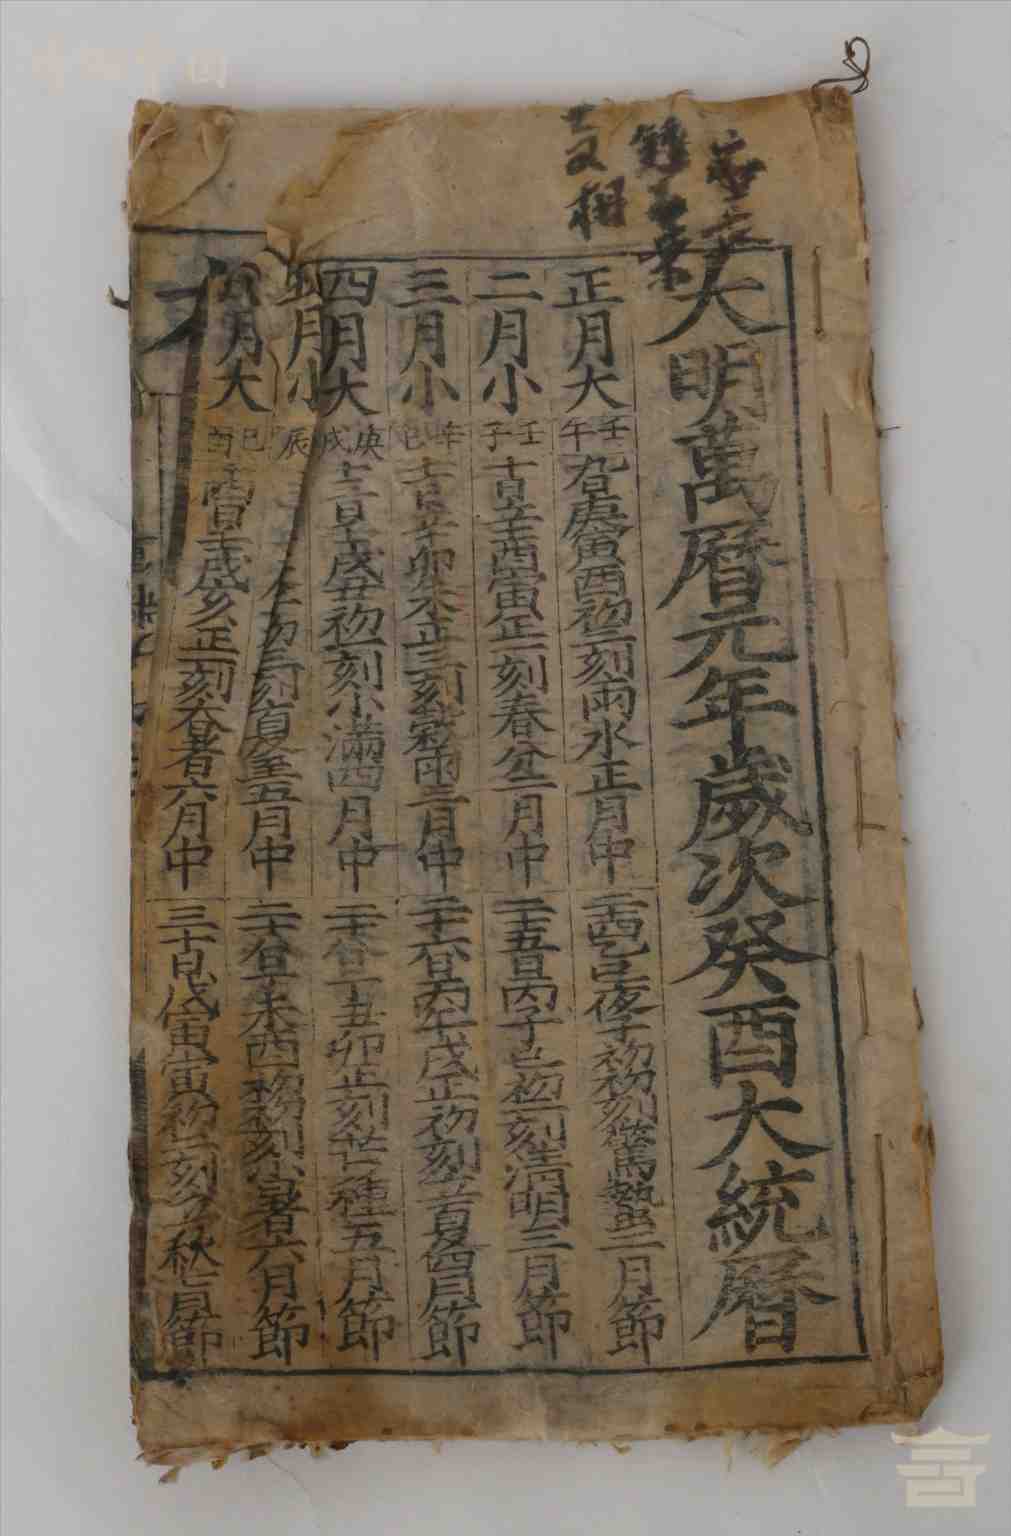 大明萬曆元年歲次癸酉大統曆
正月大 壬午 九日庚寅酉初二刻雨水正月中 二十四日乙巳夜子初初刻驚蟄二月節
二月小 壬子 十日辛酉寅正一刻春分二月中 二十五日丙子巳初一刻清明三月節
三月小 辛巳 十一日辛卯未正三刻穀雨三月中 二十六日丙午戌正初刻立夏四月節
四月大 庚戌 十三日壬戌丑初一刻小滿四月中 二十八日丁丑卯正一刻芒種五月節
五月小 辰 初三刻夏至五月中 二十八日丁未酉初初刻小暑六月節
六月大 己酉 日壬戌亥正二刻大暑六月中 三十日戊寅寅初一刻立秋七月節